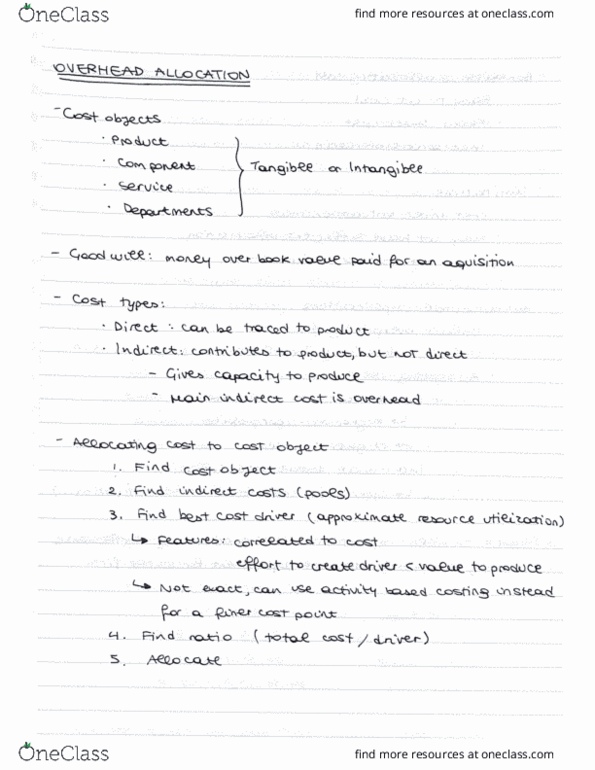 OneClass
find more resources at oneclass.com
OVERHEAD ALLOCATION
- Cost objects
· Product
· Component
· Service
· Departments
Tangible or Intangible
- Good will: money over book value paid for an aquisition
- Cost types:
· Direct : can be traced to product
· Indirect: contributes to product, but not direct
- Gives capacity to produce
- Main indirect cost is overhead
- Allocating cost to cost object
1. Find cost object
2. Find indirect costs (pools)
3. Find best cost driver (approximate resource utilization)
↳ Features: correlated to cost
effort to create driver < value to produce
↳ Not exact, can use activity based costing instead
for a finer cost point
4. Find ratio (total cost / driver)
5. Allocate
OneClass
find more resources at oneclass.com